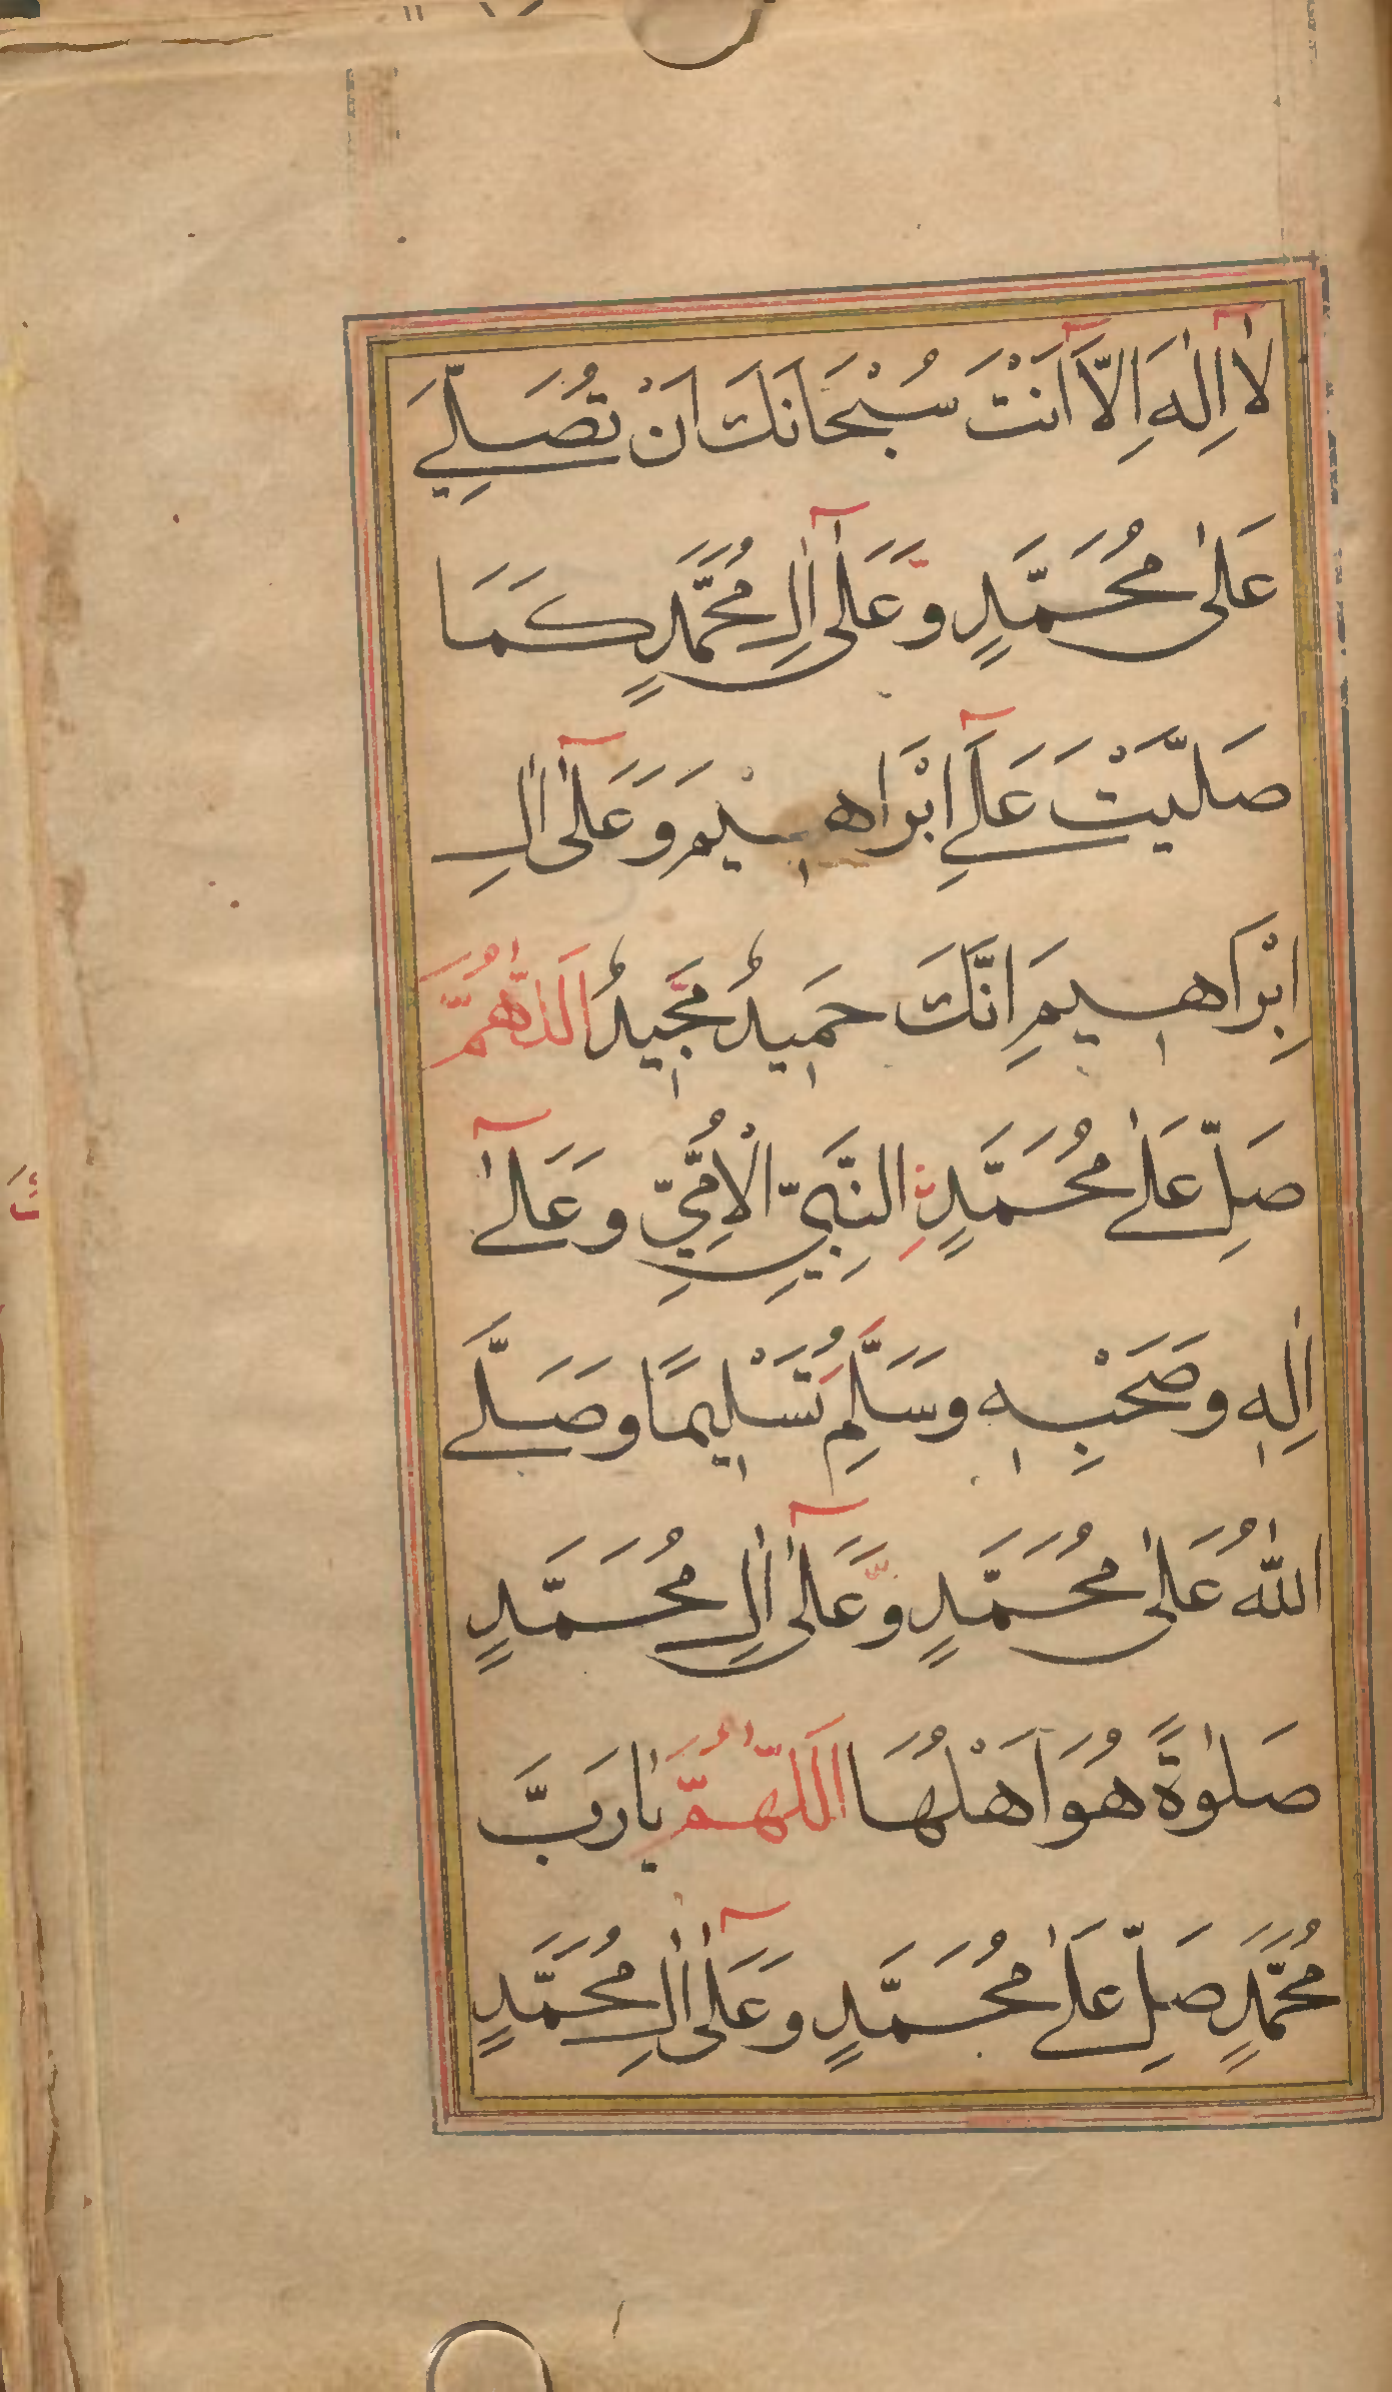 لَآ اِلٰهَ اِلَّآ اَنْتَ سُبْحَانَكَ اَنْ تُصَلِّيَ
عَلٰى مُحَمَّدٍ وَّعَلٰٓى اٰلِ مُحَمَّدٍ كَمَا
صَلَّيْتَ عَلَےٓ اِبْرَاهِيْمَ وَعَلٰٓى اٰلِ
اِبْرَاهِيمِ اِنَّكَ حَمِيدٌ مَّجِيدٌ اَللّٰهُمَّ
صَلِّ عَلٰے مُحَمَّدٍ النَّبِيِّ الْاُمِّيِّ وَعَلٰٓے
اٰلِهٖ وَصَحْبِهٖ وَسَلِّمْ تَسْلِيمًا وَصَلَّے
اللّٰهُ عَلٰى مُحَمَّدٍ وَّعَلٰٓى اٰلِ مُحَمَّدٍ
صَلٰوةً هُوَ اَهْلُهَا اَللّٰهُمَّ يَارَبَّ
مُحَمَّدٍ صَلِّ عَلٰے مُحَمَّدٍ وَعَلٰٓى اٰلِ مُحَمَّدٍ